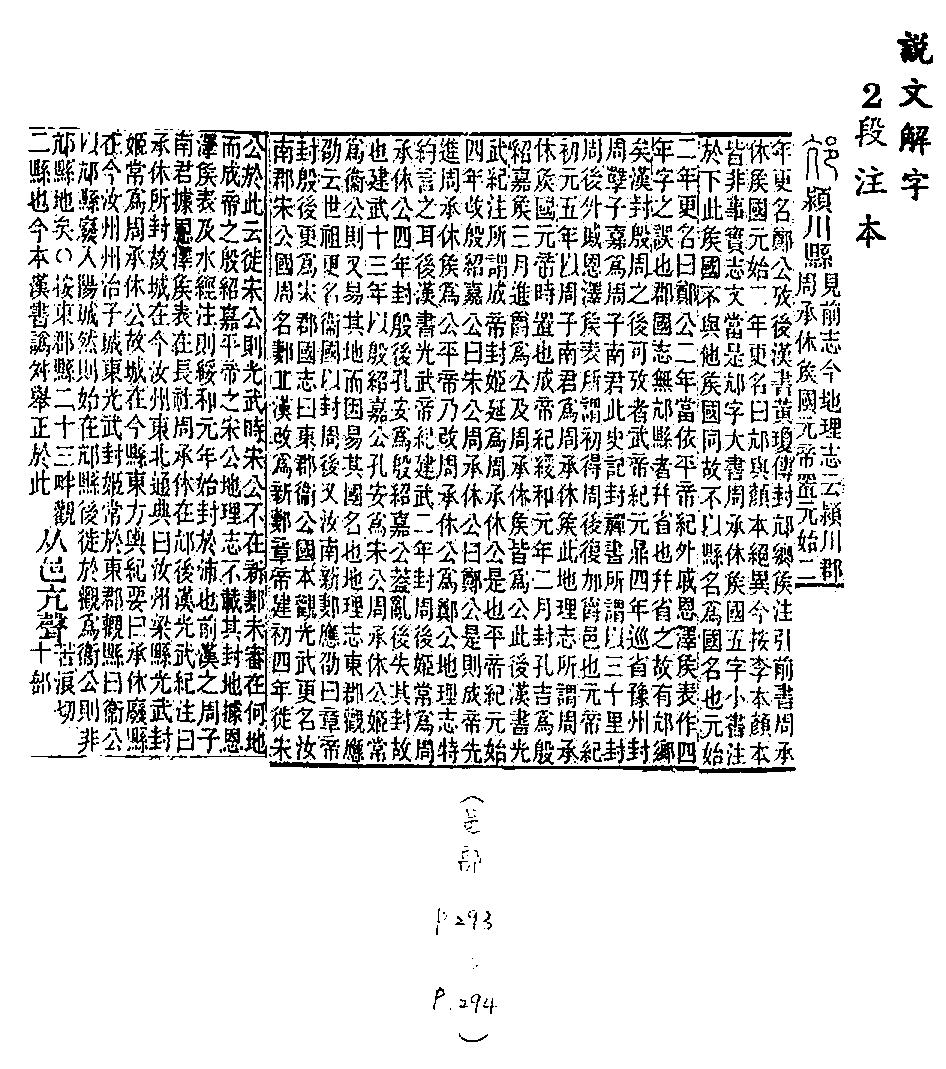 說文解字
2段注本
邟 潁川縣
見前志今地理志云潁川郡
周承休矦國元帝置元始二
年更名鄭公攷後漢書黃瓊傳封邟鄉矦注引前書周承
休矦國元始二年更名曰邟與顏本絕異今按李本顏本
皆非事實志文當是邟字大書周承休矦國五字小書注
於下此矦國不與他矦國同故不以縣名爲國名也元始
二年更名曰鄭公二年當依平帝紀外戚恩澤矦表作四
年字之誤也郡國志無邟縣者幷省也幷省之故有邟鄉
矣漢封殷周之後可攷者武帝紀元鼎四年巡省豫州封
周孽子嘉爲周子南君此史記封禪書所謂以三十里封
周後外戚恩澤矦表所謂初得周後復加爵邑也元帝紀
初元五年以周子南君爲周承休矦此地理志所謂周承
休矦國元帝時置也成帝紀綏和元年二月封孔吉爲殷
紹嘉矦三月進爵爲公及周承休矦皆爲公此後漢書光
武紀注所謂成帝封姬延爲周承休公是也平帝紀元始
四年改殷紹嘉公曰宋公周承休公曰鄭公是則成帝先
進周承休矦爲公平帝乃改周承休公爲鄭公地理志特
約言之耳後漢書光武帝紀建武二年封周後姬常爲周
承休公四年封殷後孔安爲殷紹嘉公葢亂後失其封故
也建武十三年以殷紹嘉公孔安爲宋公周承休公姬常
爲衞公則又易其地而因易其國名也地理志東郡觀應
劭云世祖更名衞國以封周後又汝南新郪應劭曰章帝
封殷後更爲宋郡國志曰東郡衞公國本觀光武更名汝
南郡宋公國周名郪丘漢改爲新郪章帝建初四年徙宋
公於此云徙宋公則光武時宋公不在新郪未審在何地
而成帝之殷紹嘉平帝之宋公地理志不載其封地據恩
澤矦表及水經注則綏和元年始封於沛也前漢之周子
南君據恩澤矦表在長社周承休在邟後漢光武紀注曰
承休所封故城在今汝州東北通典曰汝州梁縣光武封
姬常爲周承休公故城在今縣東方輿紀要曰承休廢縣
在今汝州州治子城東光武封姬常於東郡觀縣曰衞公
以邟縣竂入陽城然則始在邟縣後徙於觀爲衞公則非
邟縣地矣○按東郡縣二十三畔觀
二縣也今本漢書譌舛舉正於此
从邑亢聲
苦浪切
十部
(邑部
P.293
:
P.294)